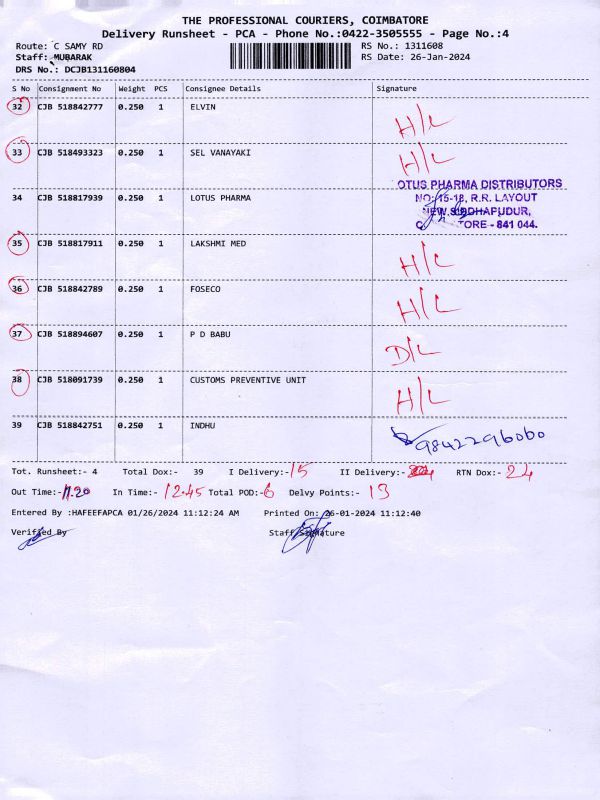 THE PROFESSIONAL COURIERS, COIMBATORE
Delivery Runsheet - PCA - Phone No.:0422-3505555 - Page No.:4
Route: C SAMY RD RS No.: 1311608
Staff: MUBARAK RS Date: 26-Jan-2024
DRS No.: DCJB131160804
S No Consignment No Weight PCS Consignee Details Signature
32 CJB 518842777 0.250 1 ELVIN H/L
33 CJB 518493323 0.250 1 SEL VANAYAKI H/L
OTUS PHARMA DISTRIBUTORS
34 CJB 518817939 0.250 1 LOTUS PHARMA NO: 15-18, R.R. LAYOUT
NEW SIDDHAPUDUR,
TORE - 841 044.
35 CJB 518817911 0.250 1 LAKSHMI MED H/L
36 CJB 518842789 0.250 1 FOSECO H/L
37 CJB 518894607 0.250 1 P D BABU D/L
38 CJB 518091739 0.250 1 CUSTOMS PREVENTIVE UNIT H/L
39 CJB 518842751 0.250 1 INDHU 9842296060
Tot. Runsheet:- 4 Total Dox:- 39 I Delivery:- 15 II Delivery:- RTN Dox:- 24
Out Time:- 11.20 In Time:- 12.45 Total POD:- 6 Delvy Points:- 13
Entered By :HAFEEFAPCA 01/26/2024 11:12:24 AM Printed On: 26-01-2024 11:12:40
Verified By Staff Signature